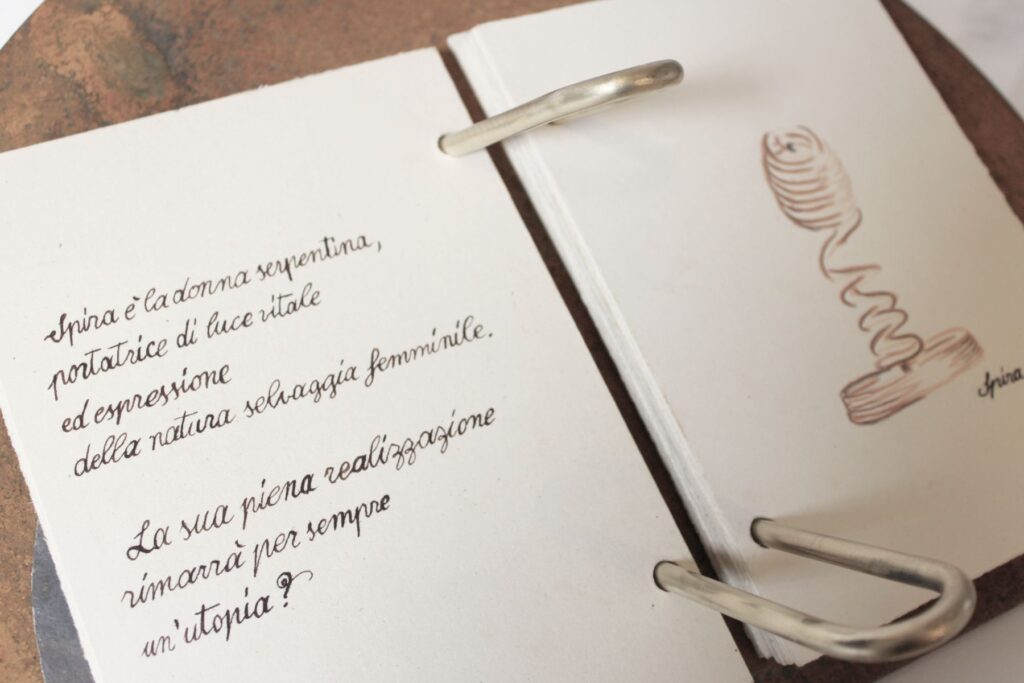 Spira è la donna serpentina,
portatrice di luce vitale
ed espressione
della natura selvaggia femminile.
La sua piena realizzazione
rimarrà per sempre
un'utopia?
Spira